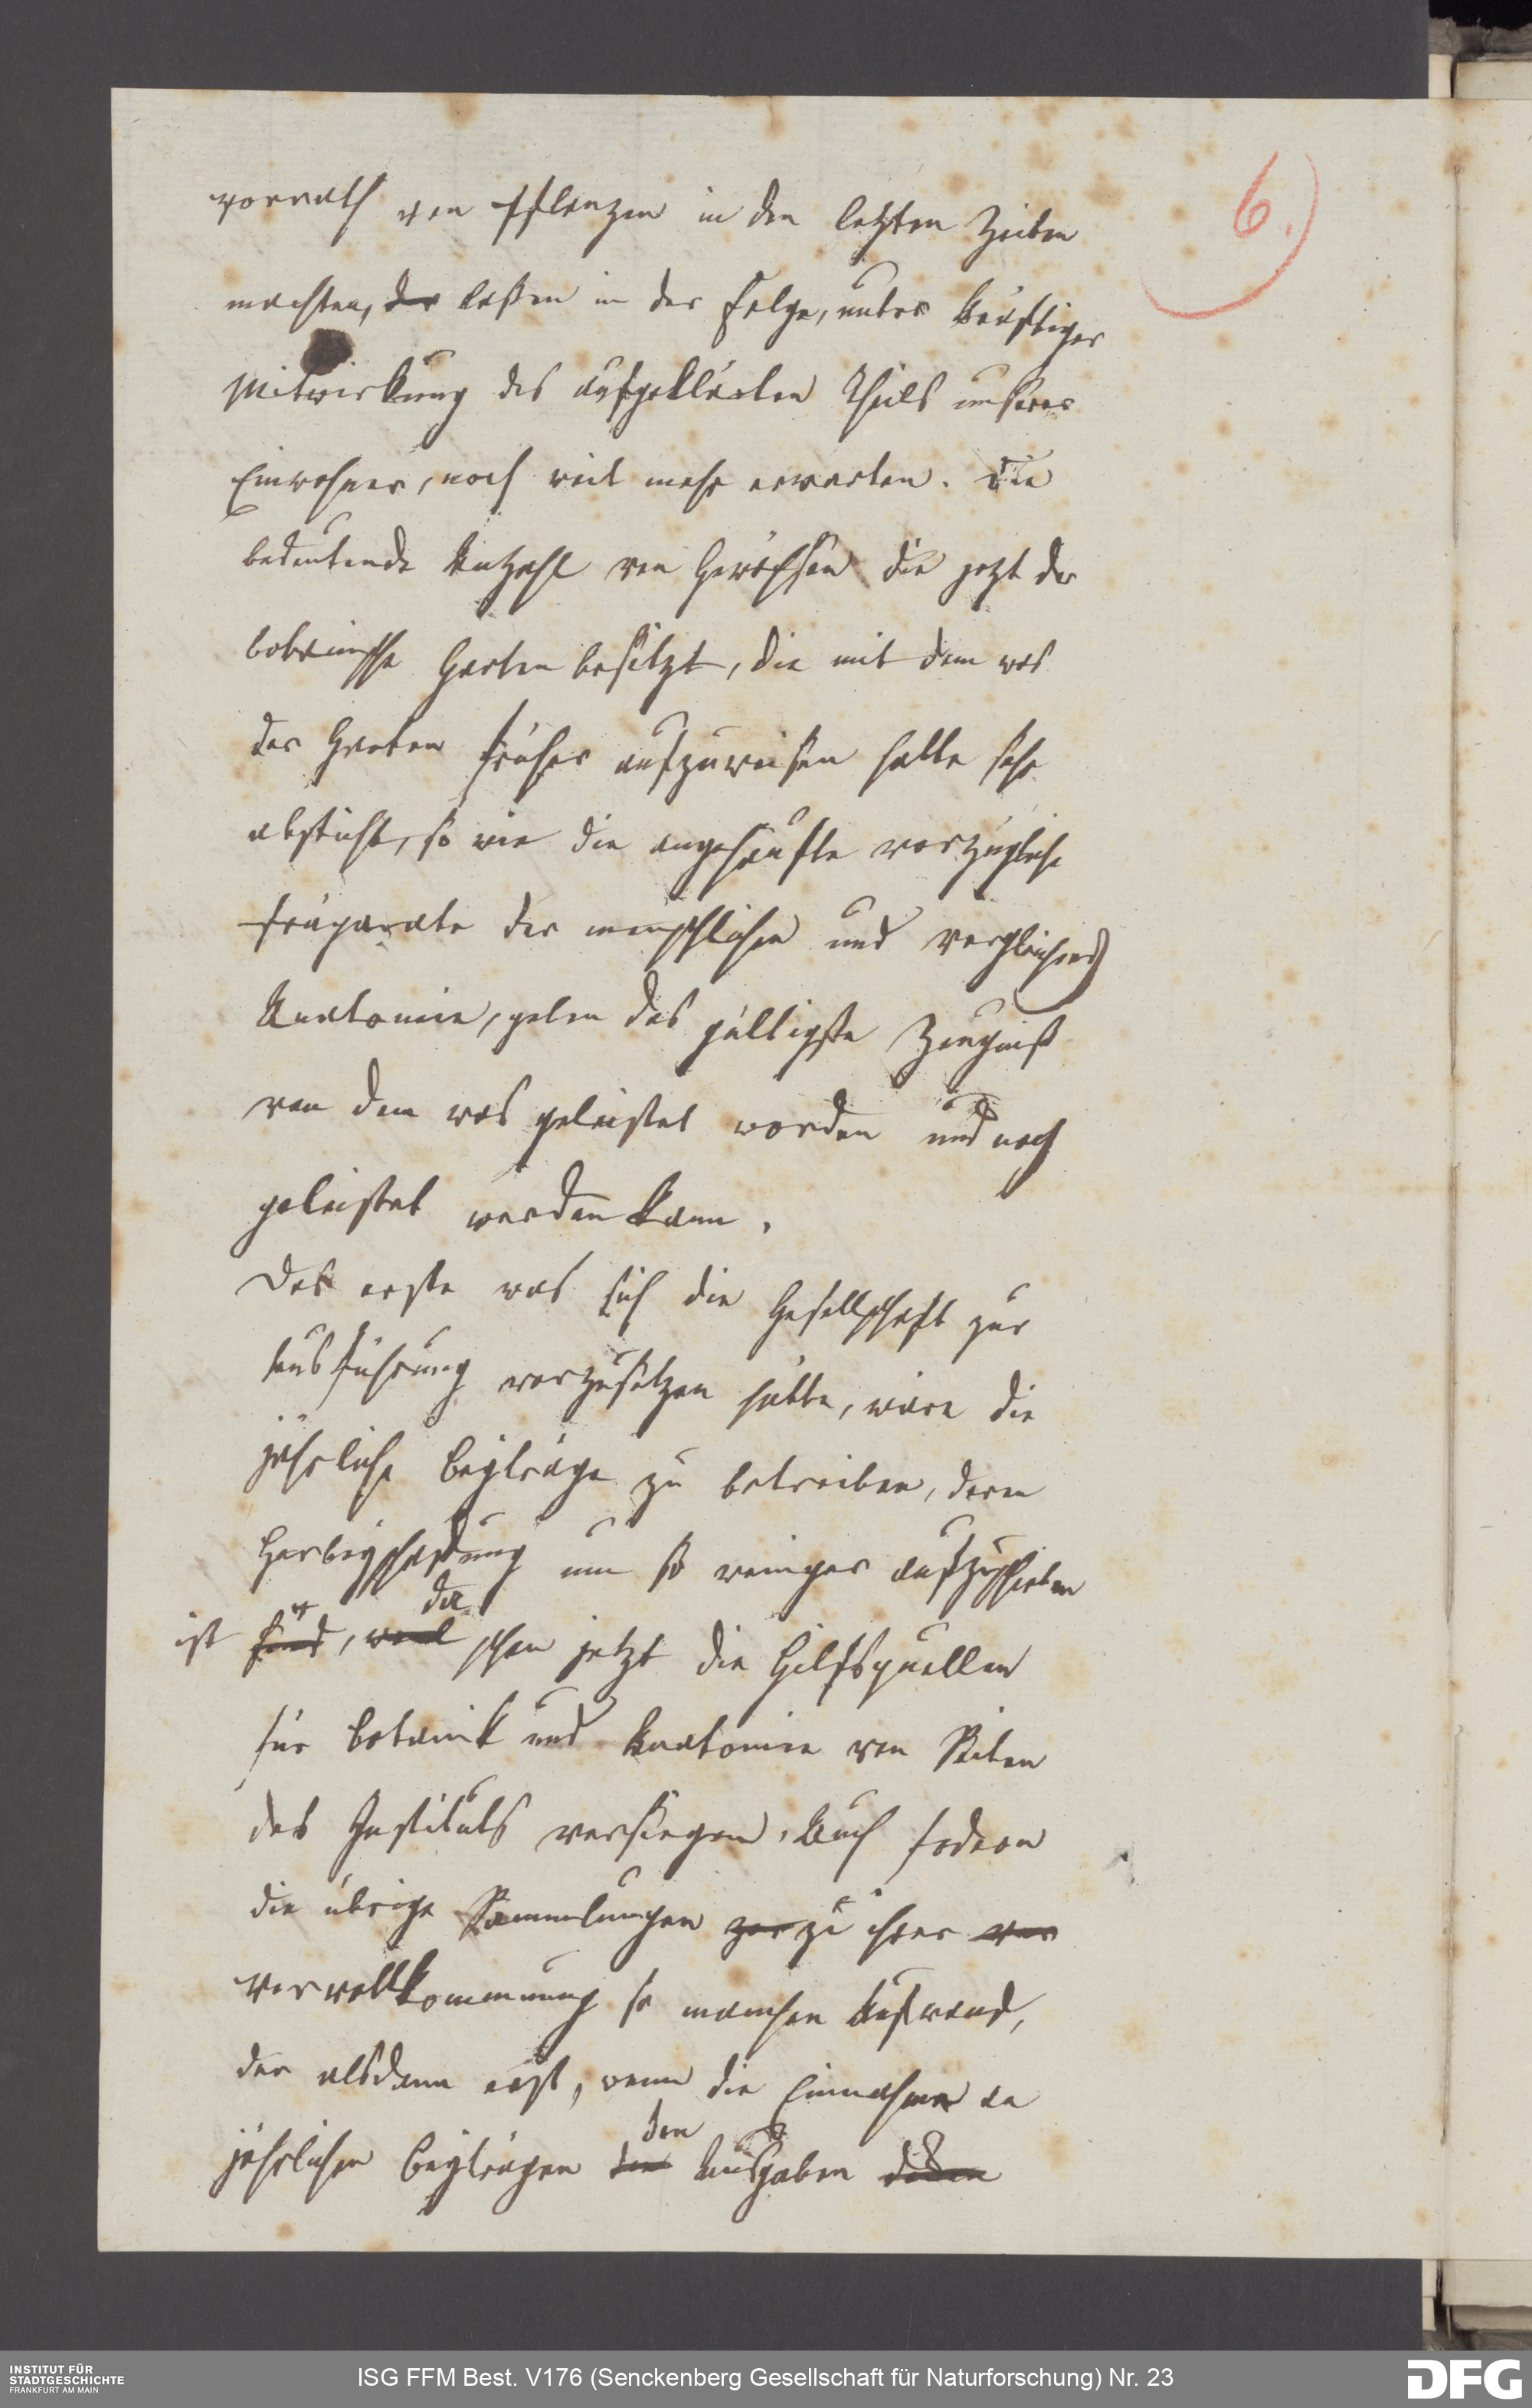 6.)
vorrath von Pflanzen in den letzten Zeiten
machten, der laßen in der Folge, unter kräftiger
Mitwirkung des aufgeklärten Theils unserer
Einwohner, noch weit mehr erwarten. Die
bedeutende Anzahl von Gewächsen die jetzt der
botanische Garten besitzt, die mit dem was
der Garten früher aufzuweisen hatte sehr
absticht, so wie die angehäufte vorzügliche
Präparate der menschlichen und vergleichend
Anatomie, geben das gültigste Zeugniß
von dem was geleistet worden und noch
geleistet werden kann.
Das erste was sich die Gesellschaft zur
Ausführung vorzusetzen hätte, wäre die
jährliche Beyträge zu betreiben, deren
Herbeyschaffung um so weniger aufzuschieben
da
ist sind, weil schon jetzt die Hilfsquellen
für Botanik und Anatomie von Seiten
des Instituts versiegen. Auch fodern
die übrige Sammlungen zur zu ihrer ver
Vervollkommnung so manchen Aufwand,
der alsdann erst, wenn die Einnahme an
den
jährlichen Beyträgen die Ausgaben
INSTITUT FÜR
STADTGESCHICHTE
FRANKFURT AM MAIN
ISG FFM Best. V176 (Senckenberg Gesellschaft für Naturforschung) Nr. 23
DFG